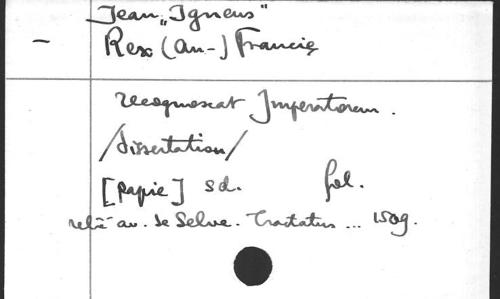 Jean „Igneus"
— Rex (an-) Francie
recognoscat Imperatorem.
/dissertation/
[papie] sd. fol.
relié av. de Selve. Tractatus ... 1509.